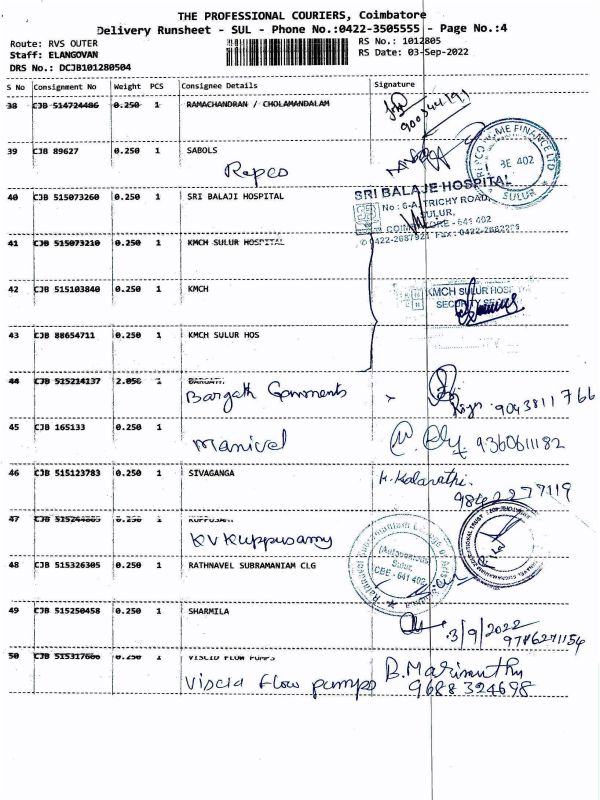 THE PROFESSIONAL COURIERS, Coimbatore
Delivery Runsheet - SUL - Phone No.:0422-3505555 - Page No.:4
Route: RVS OUTER
RS No.: 1012805
Staff: ELANGOVAN
RS Date: 03-Sep-2022
DRS No.: DCJB101280504
S No Consignment No Weight PCS Consignee Details Signature
38 CJB 514724486 0.250 1 RAMACHANDRAN / CHOLAMANDALAM
39 CJB 89627 0.250 1 SABOLS
Repco
HOME FINANCE LTD
CBE 402
SULUR
40 CJB 515073260 0.250 1 SRI BALAJI HOSPITAL
SRI BALAJE HOSPITAL
No : 6-A, TRICHY ROAD,
SULUR,
COIMBATORE - 641 402
41 CJB 515073210 0.250 1 KMCH SULUR HOSPITAL
42 CJB 515103840 0.250 1 KMCH
KMCH SULUR HOSPITAL
43 CJB 88654711 0.250 1 KMCH SULUR HOS
44 CJB 515214137 2.050 1 BARGATH
Bargath Garments
9043811766
45 CJB 165133 0.250 1
Manivel
9360611182
46 CJB 515123783 0.250 1 SIVAGANGA
K. Kalarathi.
9842277119
47 0.250 1
KV Kuppusamy
(Autonomous)
Sulur,
CBE - 641 402
48 CJB 515326305 0.250 1 RATHNAVEL SUBRAMANIAM CLG
49 CJB 515250458 0.250 1 SHARMILA
3/9/2022
9786271154
50 CJB 515317666 0.250 1 VISCID FLOW PUMPS
Viscid Flow pumps
B. Marimuthu
9688324698